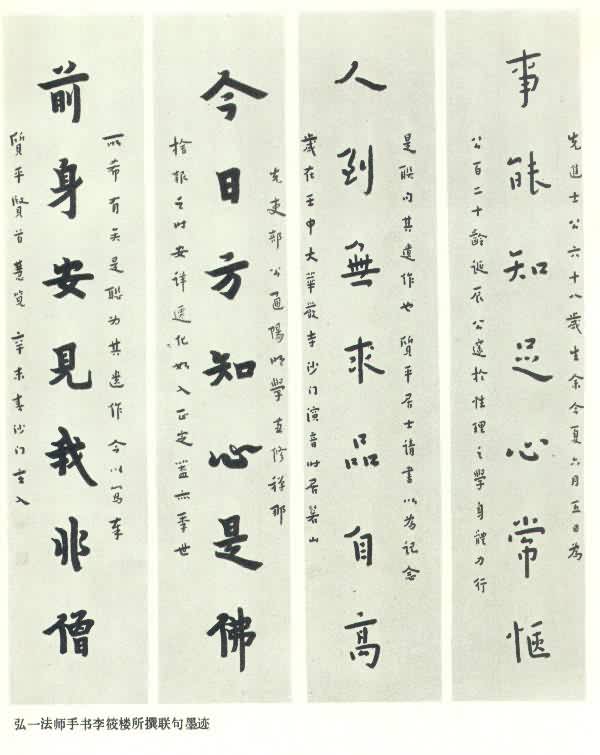 先進士公六十八歲生余今夏六月五日為
事能知足心常愜
公百二十齡誕辰公邃於性理之學身體力行
是聯句其遺作也質平居士請書以為記念
人到無求品自高
歲在壬申大華嚴寺沙门演音时居山
先吏部公通陽明學直修禪那
今日方知心是佛
捨報之时安詳遷化如入正定蓋亦季世
所希有矣是聯为其遺作今以寫奉
前身安見我非僧
質平賢首慧覽辛未春沙门
弘一法师手书李筱楼所撰联句墨迹